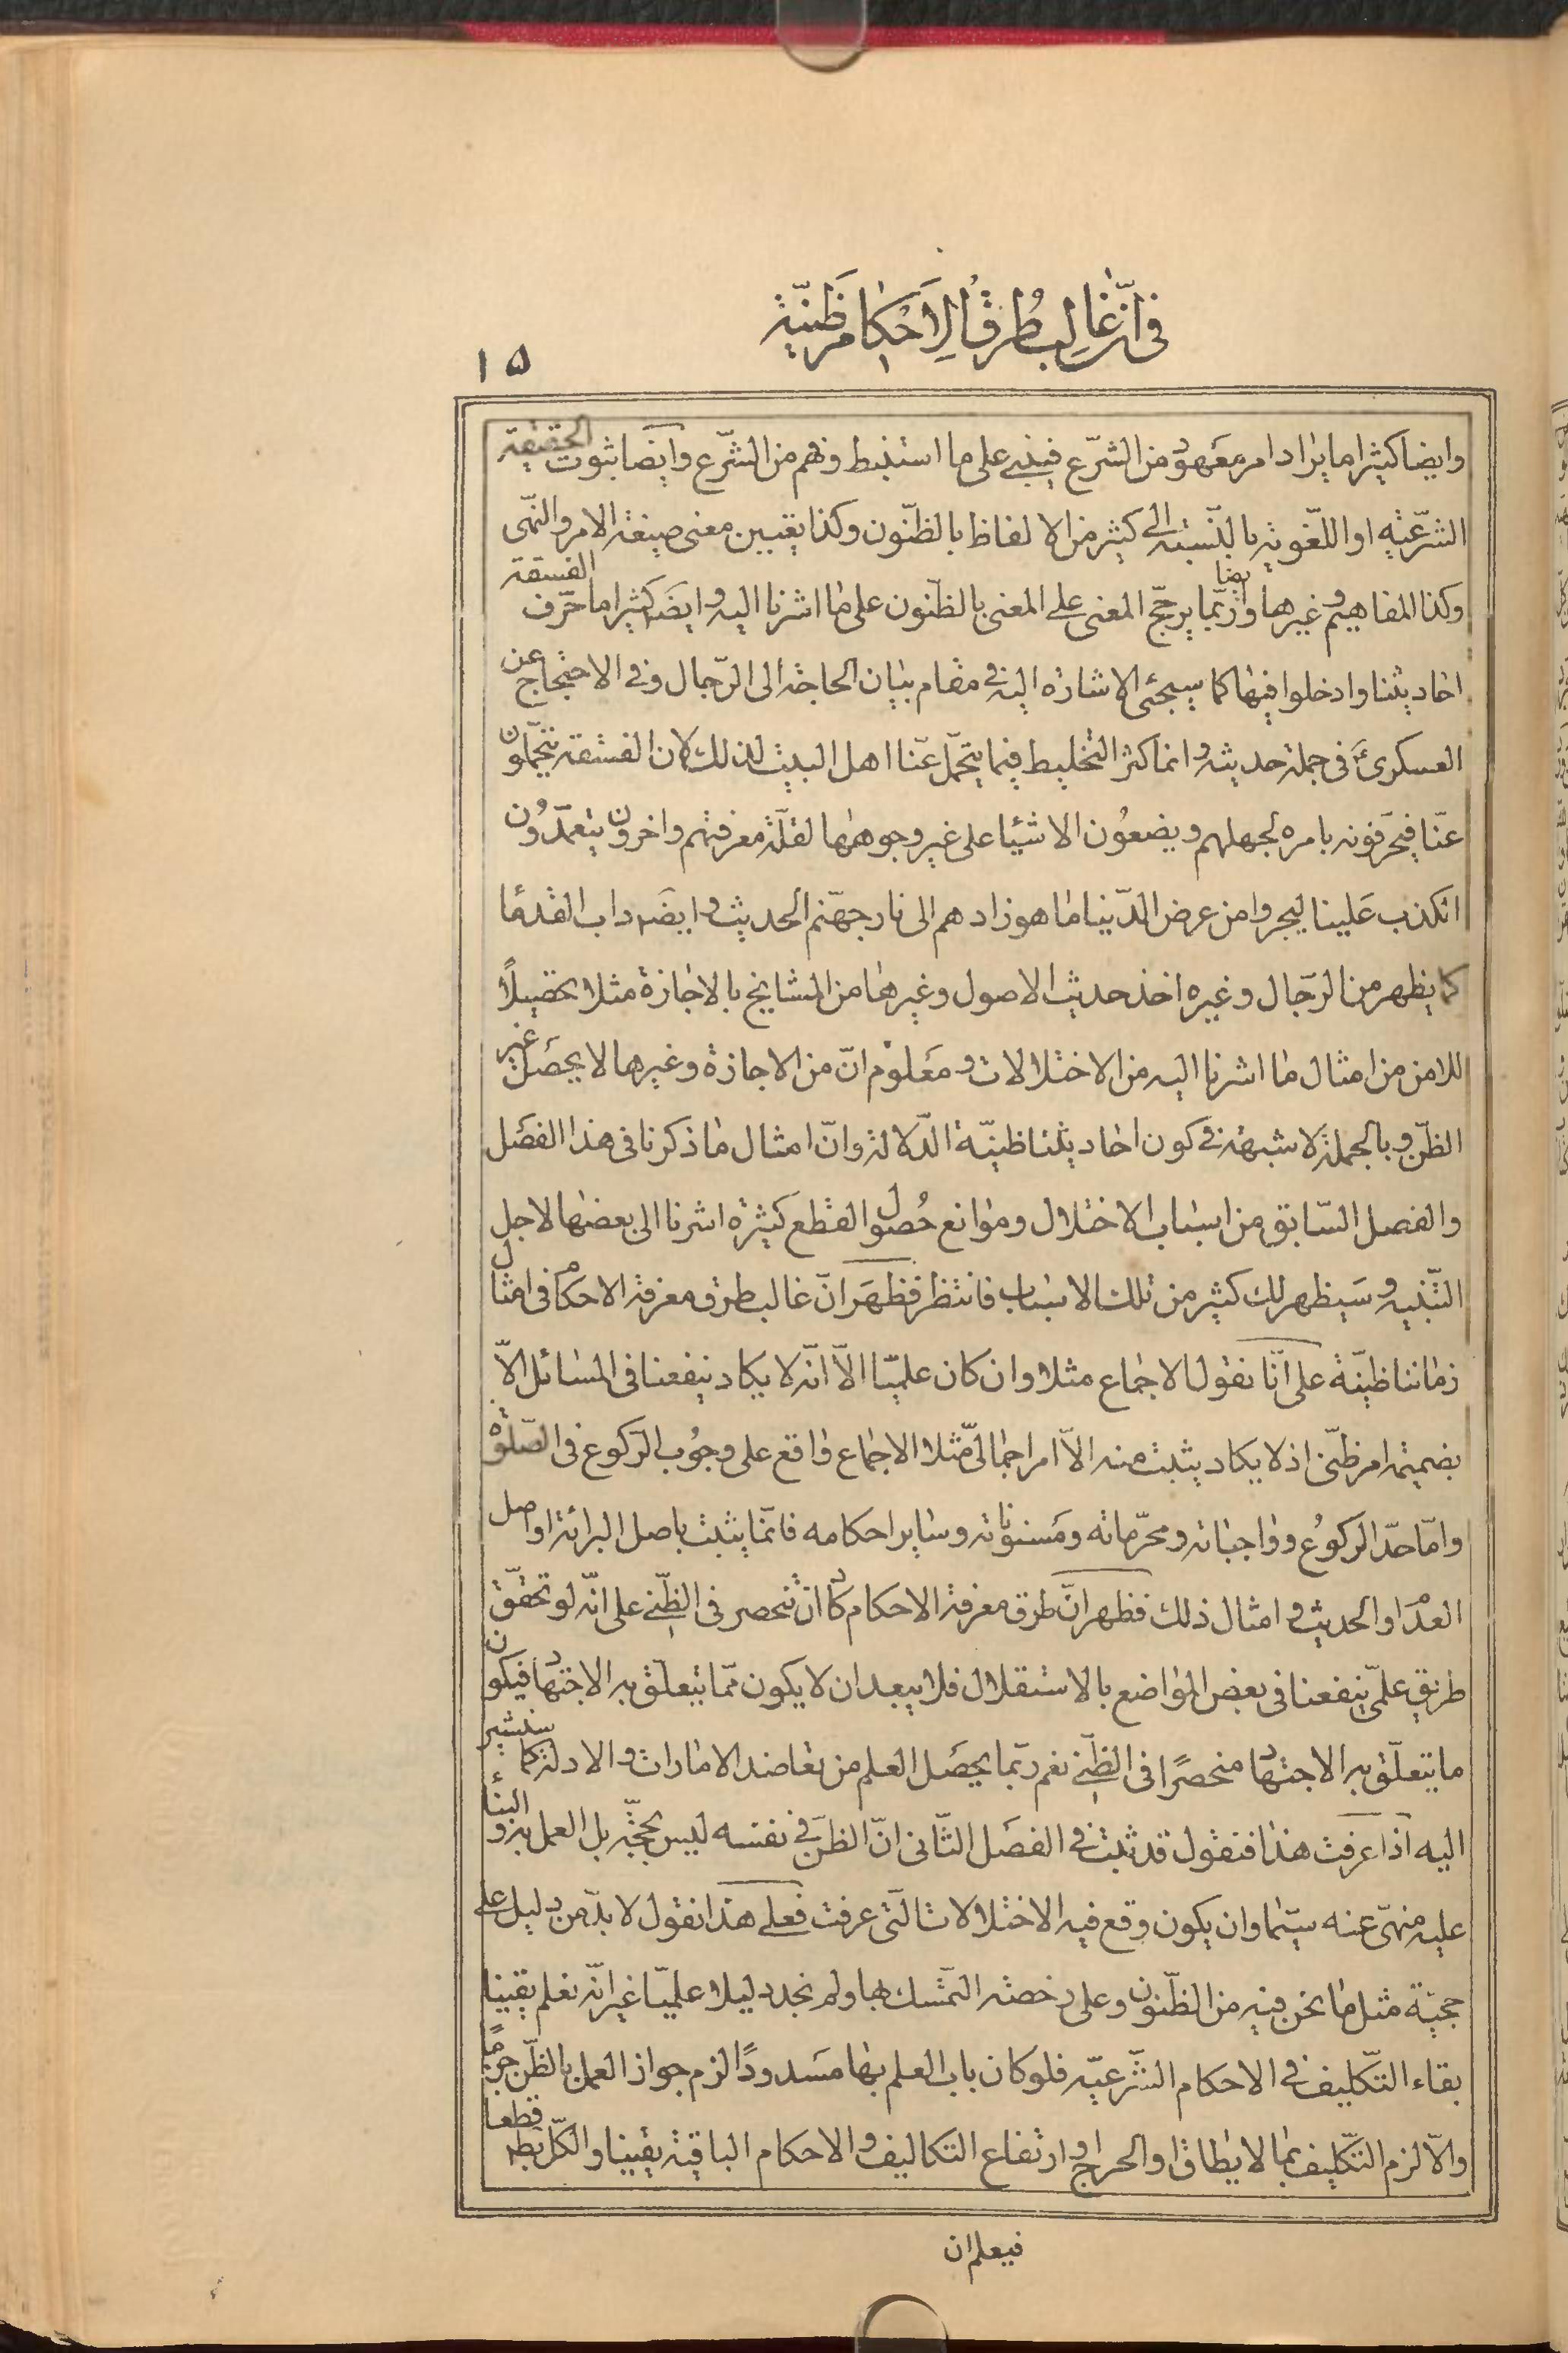 في ان غالب طرق الاحكام ظنية
۱۵
وايضا كثيرا ما يراد امر معهود من الشرع فيبني على ما استنبط وفهم من الشرع وايضا ثبوت الحقيقة
الشرعية او اللغوية بالنسبة الى كثير من الالفاظ بالظنون وكذا تعيين معنى صيغة الامر والنهى
وكذا المفاهيم وغيرها وايضا ربما يرجح المعنى على المعنى بالظنون على ما اشرنا اليه وايضا كثيرا ما حرف الفسقة
احاديثنا وادخلوا فيها كما سيجئ الاشارة اليه في مقام بيان الحاجة الى الرجال وفي الاحتجاج عن
العسكرى ع في جملة حديثه وانما كثر التخليط فيما يتحمل عنا اهل البيت لذلك لان الفسقة يتحملون
عنا فيحرفونه باسره لجهلهم ويضعون الاشياء على غير وجوهها لقلة معرفتهم واخرون يتعمدون
الكذب علينا ليجروا من عرض الدنيا ما هو زادهم الى نار جهنم الحديث وايضا داب القدماء
كما يظهر من الرجال وغيره اخذ حديث الاصول وغيرها من المشايخ بالاجازة مثلا تحصيلا
للامن من امثال ما اشرنا اليه من الاختلالات ومعلوم ان من الاجازة وغيرها لا يحصل غير
الظن وبالجملة لا شبهة في كون احاديثنا ظنية الدلالة وان امثال ما ذكرنا في هذا الفصل
والفصل السابق من اسباب الاختلال وموانع حصول القطع كثيرة اشرنا الى بعضها لاجل
التنبيه وسيظهر لك كثير من تلك الاسباب فانتظر فظهر ان غالب طرق معرفة الاحكام في امثال
زماننا ظنية على انا نقول الاجماع مثلا وان كان علميا الا انه لا يكاد ينفعنا في المسائل الا
بضميمة امر ظني اذ لا يكاد يثبت منه الا امر اجمالي مثلا الاجماع واقع على وجوب الركوع في الصلوة
واما حد الركوع وواجباته ومحرماته ومسنوناته وساير احكامه فانما يثبت باصل البرائة او اصل
العدم او الحديث وامثال ذلك فظهر ان طرق معرفة الاحكام كاد ان تنحصر في الظني على انه لو تحقق
طريق علمي ينفعنا في بعض المواضع بالاستقلال فلا يبعد ان لا يكون مما يتعلق به الاجتهاد فيكون
ما يتعلق به الاجتهاد منحصرا في الظني نعم ربما يحصل العلم من تعاضد الامارات والادلة كما سنشير
اليه اذا عرفت هذا فنقول قد ثبت في الفصل الثاني ان الظن في نفسه ليس بحجة بل العمل به والبناء
عليه منهى عنه سيما وان يكون وقع فيه الاختلالات التي عرفت فعلى هذا نقول لا بد من دليل على
حجية مثل ما نحن فيه من الظنون وعلى رخصة التمسك بها ولم نجد دليلا علميا غير انه نعلم يقينا
بقاء التكليف في الاحكام الشرعية فلو كان باب العلم بها مسدودا لزم جواز العمل بالظن جزما
والا لزم التكليف بما لا يطاق او الحرج او ارتفاع التكاليف والاحكام الباقية يقينا والكل بط قطعا
فيعلم ان